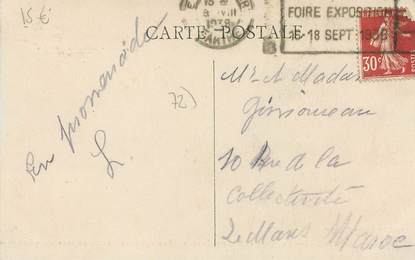 15 €
CARTE POSTALE
FOIRE EXPOSITION
15-18 SEPT. 1938
30c
POSTES
En promenade
L.
72)
Mr & Madame
10 Rue de la
Collectivité
Le Mans Maroc